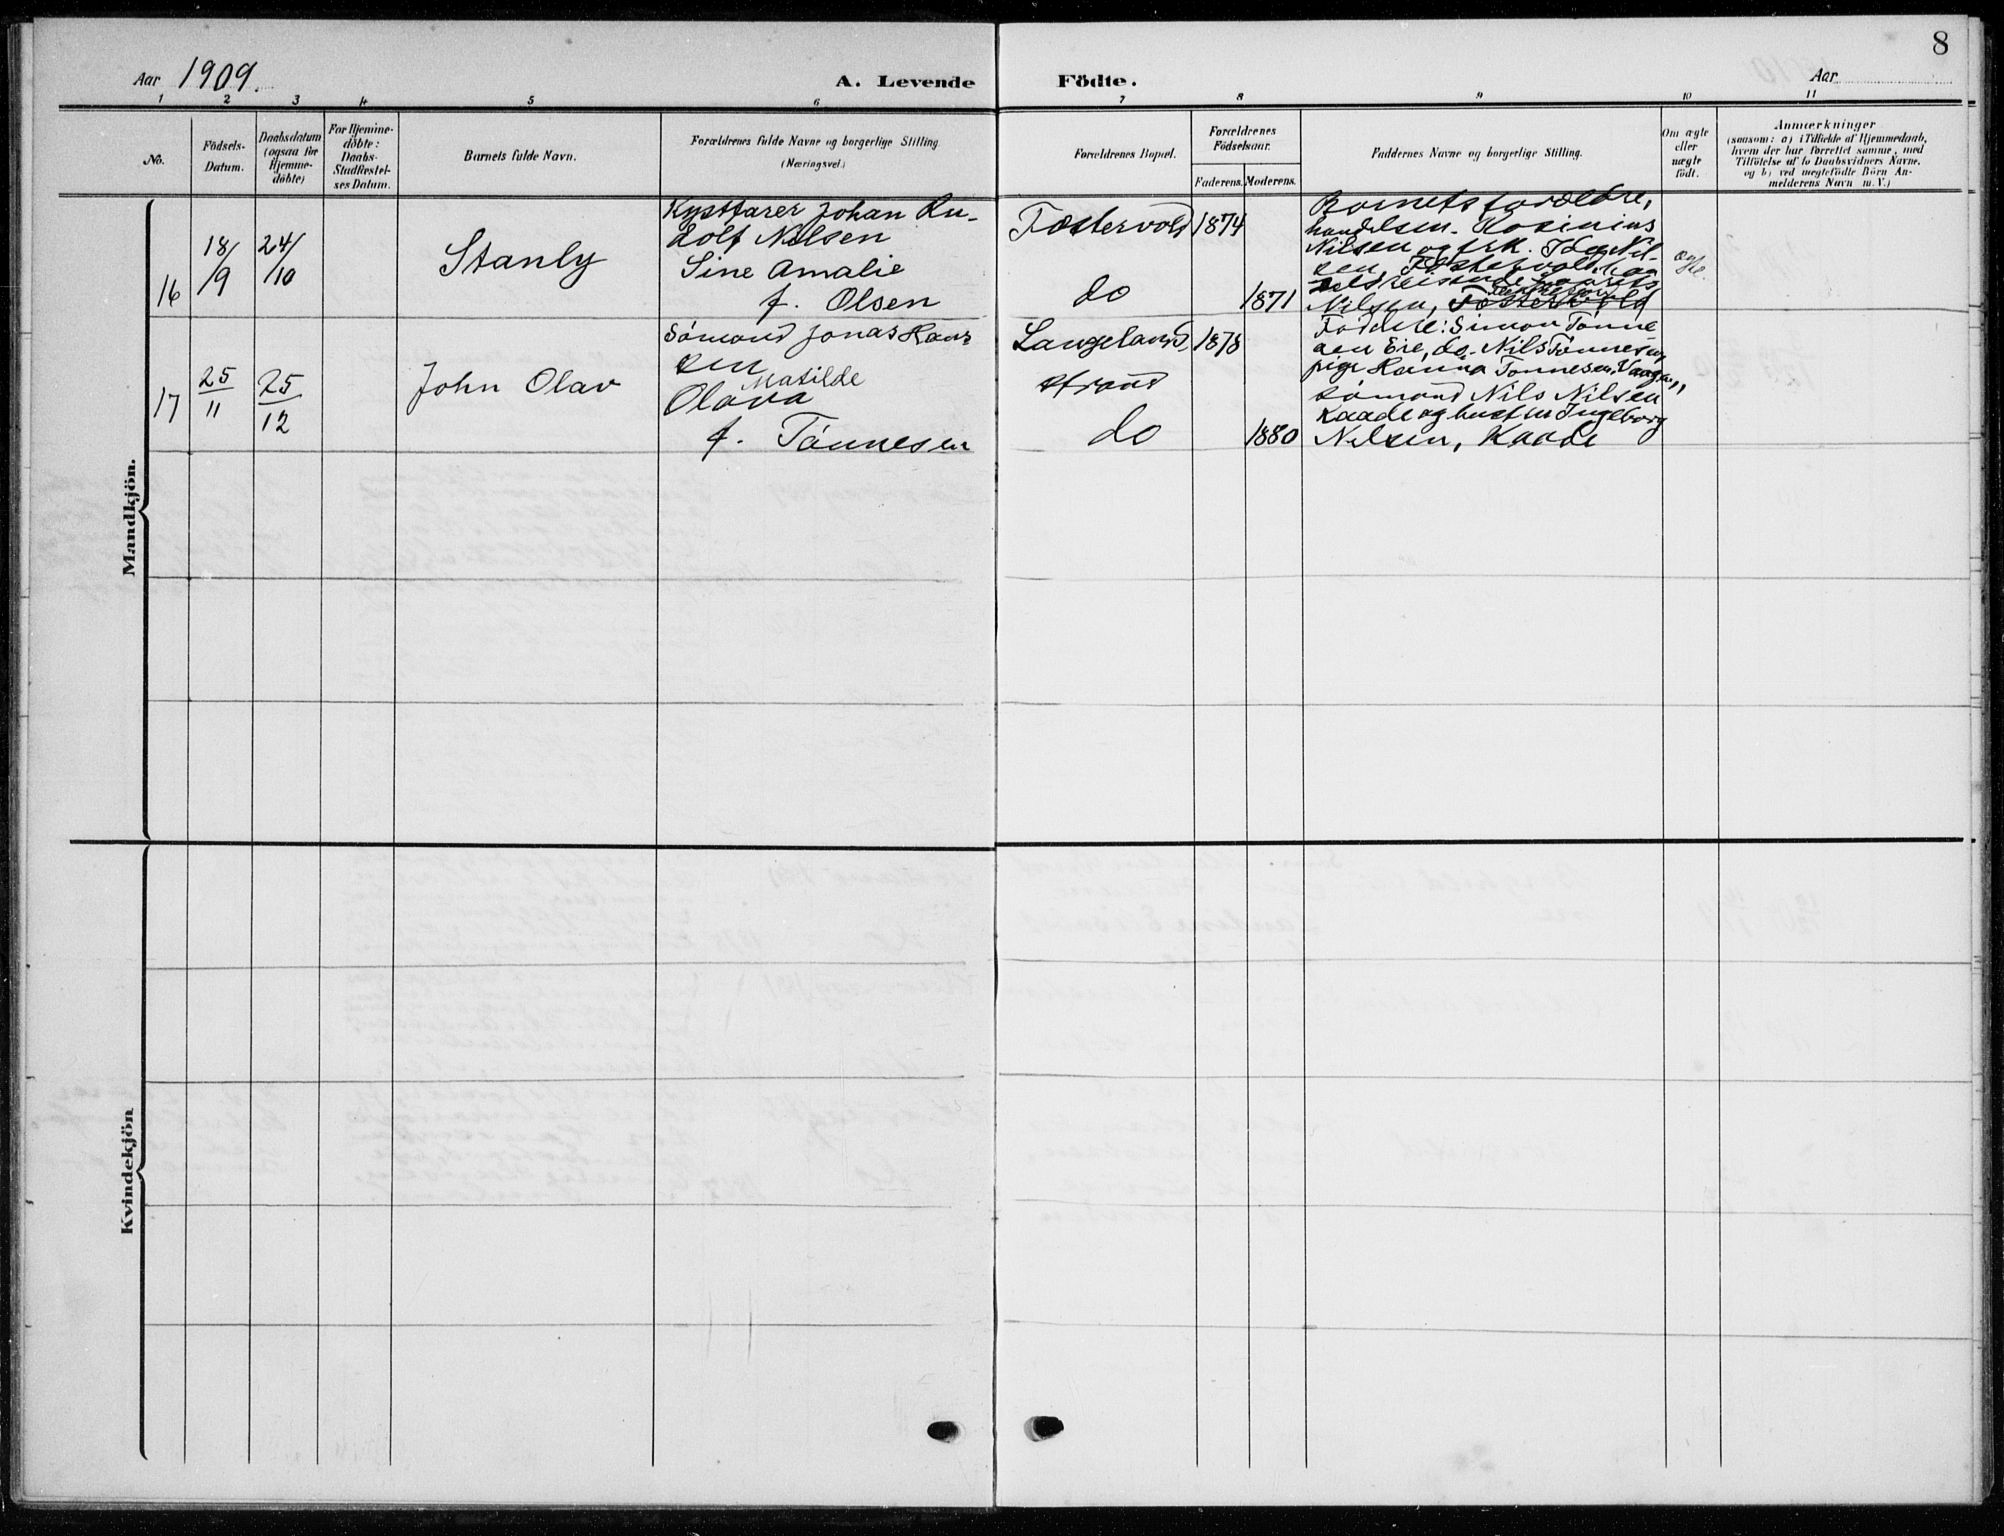 8
Aar 1909.
A. Levende Födte.
Aar
1 2 3 4 5 6 7 8 9 10 11
No.
Födsels-
Datum.
Daabsdatum
(ogsaa for
Hjemme-
döbte)
For Hjemme-
döbte:
Daabs-
Stadfæstel-
ses Datum.
Barnets fulde Navn.
Forældrenes fulde Navne og borgerlige Stilling
(Næringsvei.)
Forældrenes Bopæl.
Forældrenes
Födselsaar.
Faderens. Moderens.
Faddernes Navne og borgerlige Stilling.
Om ægte
eller
uægte
födt.
Anmærkninger
(saasom: a) i Tilfælde af Hjemmedaab,
hvem der har forrettet samme, med
Tilföielse af to Daabsvidners Navne,
og b) ved uægtefödte Börn An-
melderens Navn m. V.)
Mandkjön.
16
18/9
24/10
Stanly
Kystfarer Johan Ru-
dolf Nilsen
Sine Amalie
f. Olsen
Fostervold
do
1874
1871
Barnets forældre,
handelsm. Rosinius
Nilsen og frk. Ida Nil-
sen,
Nilsen, Fostervold
ægte.
17
25/11
25/12
John Olav
Sømand Jonas Han-
sen
Matilde
Olava
f. Tönnesen
Langeland,
strand
do
1878
1880
Fodere: Simon Tönne
sen Eie, do. Nils Tönnesen,
pige Hanna Tonnesen, Vaagen,
sømand Nils Nilsen
Kaade og hustru Ingeborg
Nilsen, Kaade
Kvindekjön